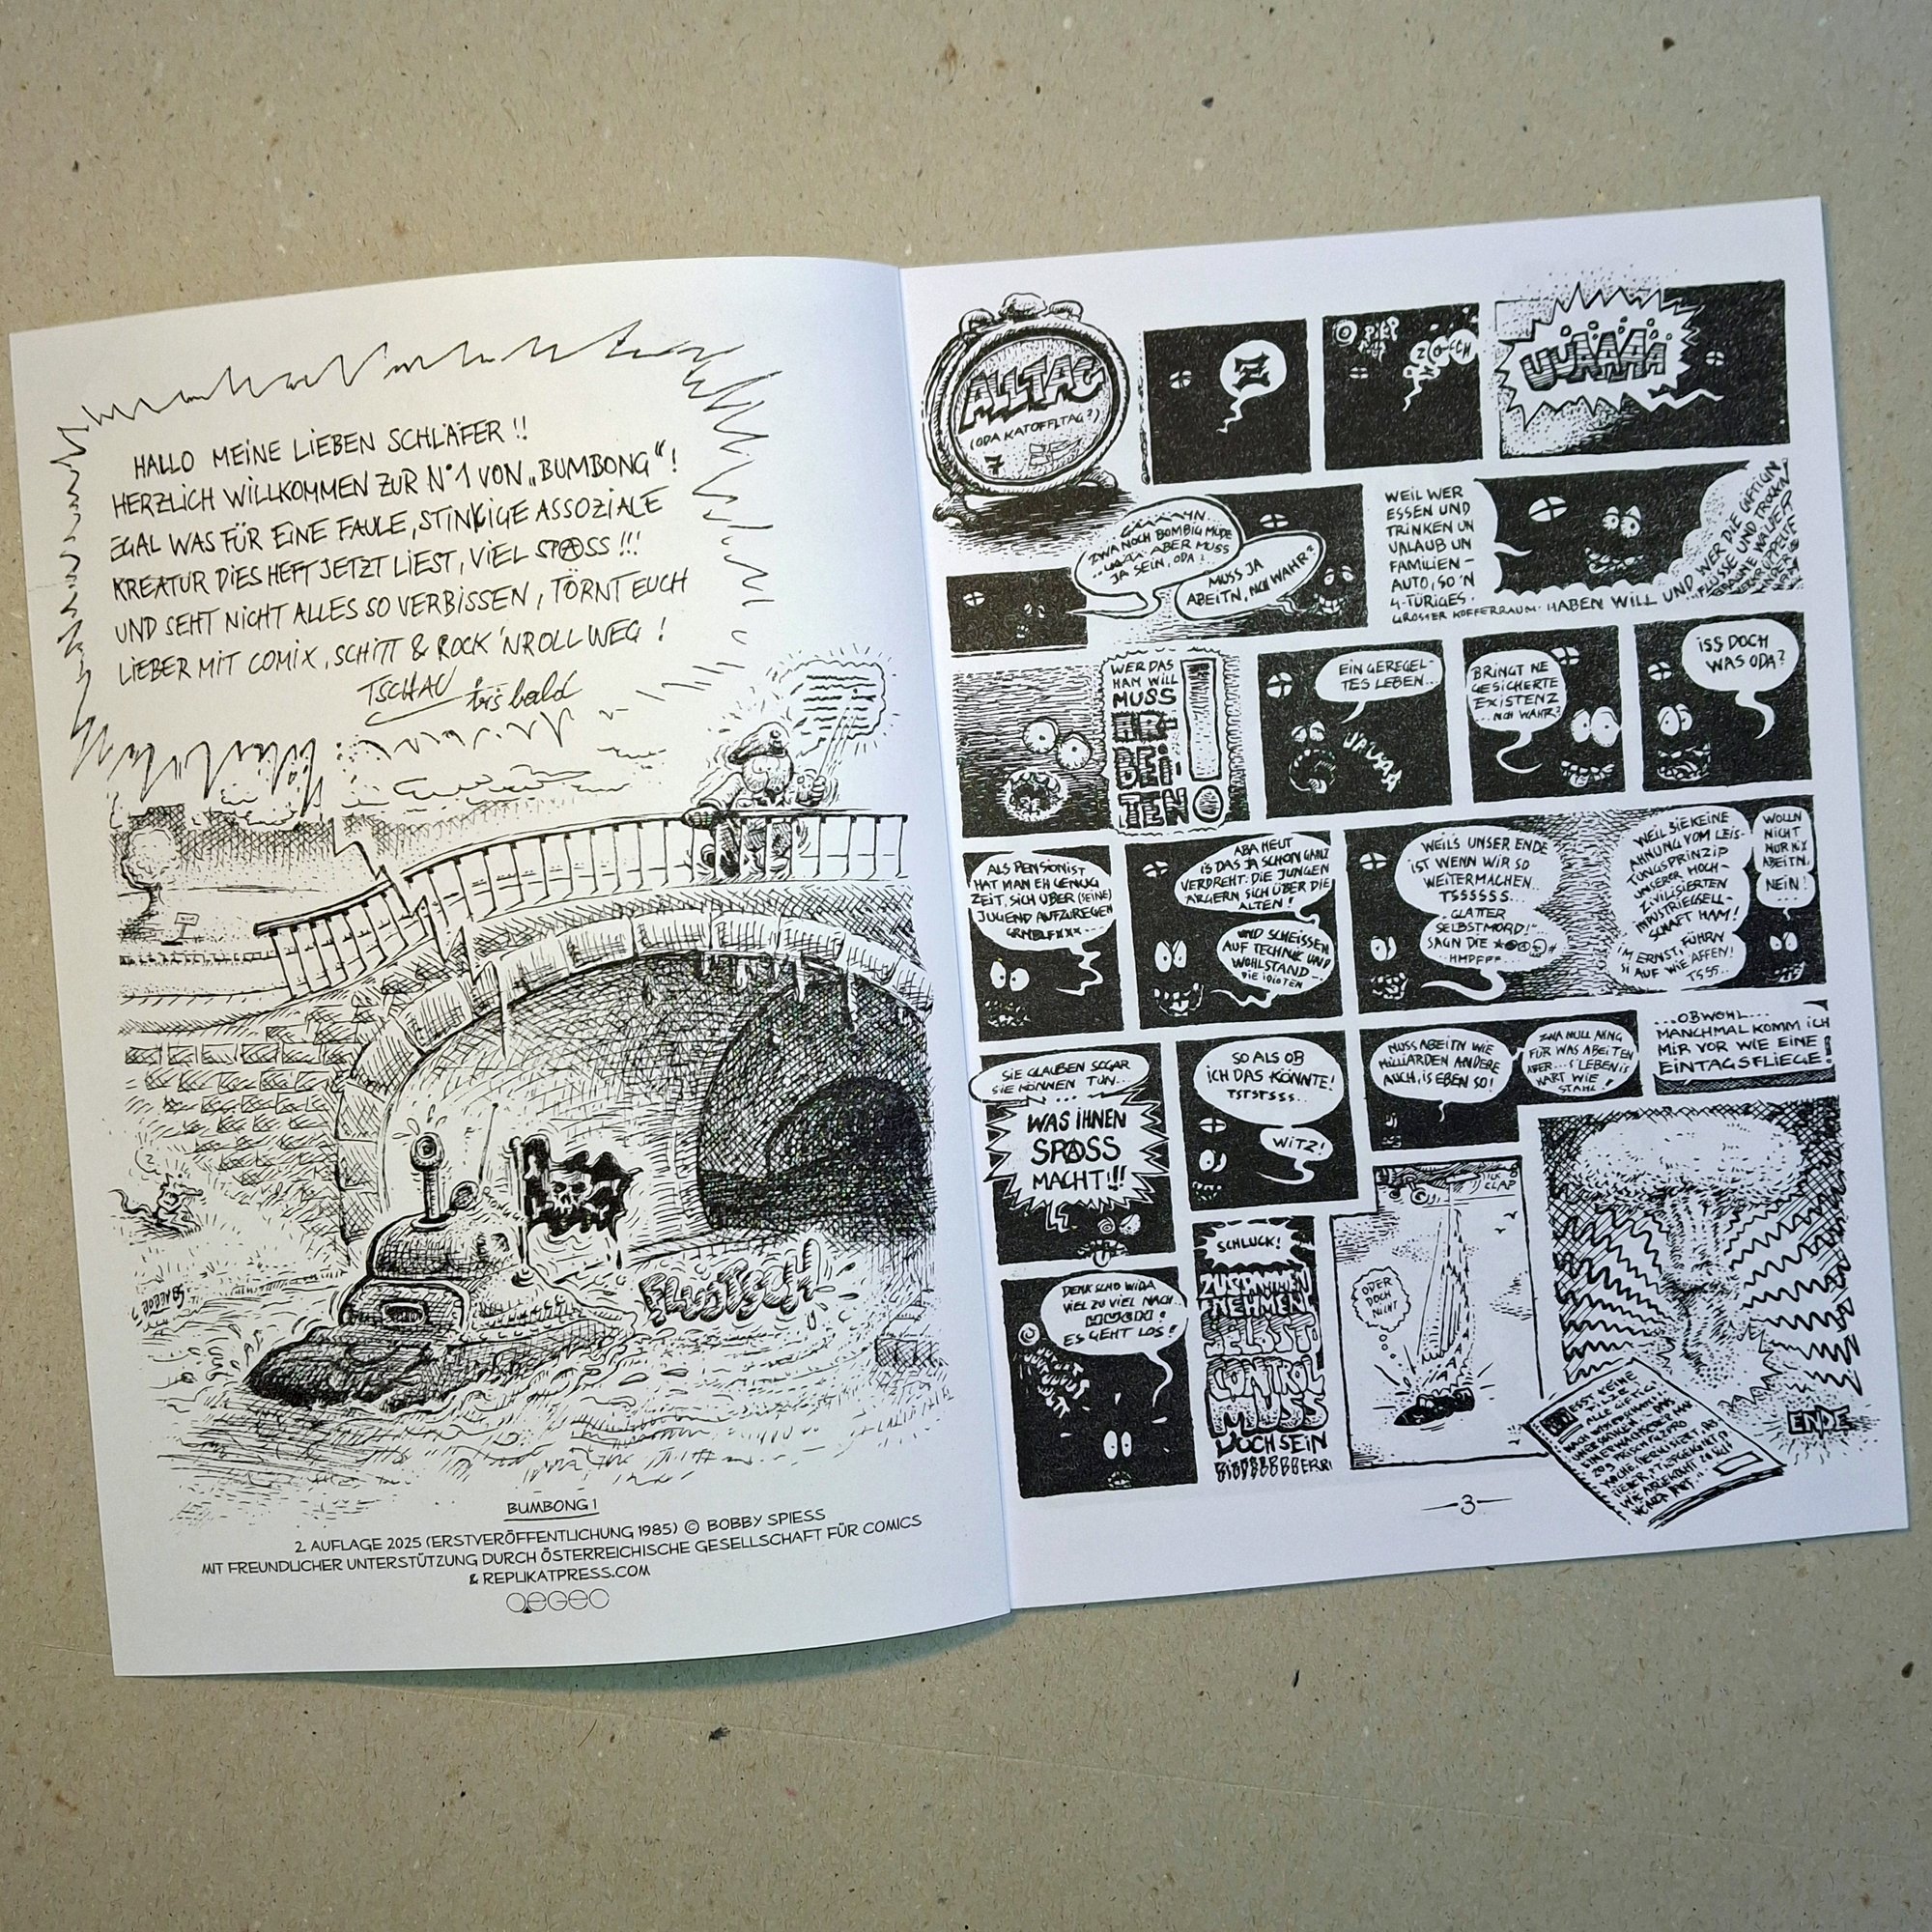 HALLO MEINE LIEBEN SCHLÄFER !!
HERZLICH WILLKOMMEN ZUR N°1 VON „BUMBONG“ !
EGAL WAS FÜR EINE FAULE, STINKIGE ASSOZIALE
KREATUR DIES HEFT JETZT LIEST, VIEL SPASS !!!
UND SEHT NICHT ALLES SO VERBISSEN, TÖRNT EUCH
LIEBER MIT COMIX, SCHITT & ROCK 'N ROLL WEG !
TSCHAU bis bald
BUMBONG 1
2. AUFLAGE 2025 (ERSTVERÖFFENTLICHUNG 1985) © BOBBY SPIESS
MIT FREUNDLICHER UNTERSTÜTZUNG DURCH ÖSTERREICHISCHE GESELLSCHAFT FÜR COMICS
& REPLIKATPRESS.COM
OEGEC
ALLTAG
(ODA KATOFFLTAG?)
7
Z
PIEP
UUÄÄÄÄ
GÄÄÄÄYN..
ZWA NOCH BOMBIG MÜDE
ABER MUSS
JA SEIN, ODA?
MUSS JA
ABEITN, NICH WAHR?
WEIL WER
ESSEN UND
TRINKEN UN
URLAUB UN
FAMILIEN-
AUTO, SO 'N
4-TÜRIGES.
GROSSER KOFFERRAUM. HABEN WILL UND WER DIE GIFTIGN
FLÜSSE UND TROCKN
BRAUNE WÄLDER
WER DAS
HAM WILL
MUSS
AR-
BEI-
TEN!
EIN GEREGEL-
TES LEBEN...
JAUSAA
BRINGT NE
GESICHERTE
EXISTENZ
..NICH WAHR?
ISS DOCH
WAS ODA?
ALS PENSIONIST
HAT MAN EH GENUG
ZEIT, SICH ÜBER (SEINE)
JUGEND AUFZUREGEN
GRMBLFXXX...
ABA HEUT
IS DAS JA SCHON GANZ
VERDREHT. DIE JUNGEN
ÄRGERN SICH ÜBER DIE
ALTEN!
UND SCHEISSEN
AUF TECHNIK UND
WOHLSTAND..
DIE IDIOTEN
WEILS UNSER ENDE
IST WENN WIR SO
WEITERMACHEN..
TSSSSSS...
"GLATTER
SELBSTMORD!"
SAGN DIE
..HMPFF..
WEIL SIE KEINE
AHNUNG VOM LEIS-
TUNGSPRINZIP
UNSERER HOCH-
ZIVILISIERTEN
INDUSTRIEGESELL-
SCHAFT HAM!
IM ERNST, FÜHRN
SI AUF WIE AFFEN!
TSSS..
WOLLN
NICHT
NUR NIX
ABEITN.
NEIN!
SIE GLAUBEN SOGAR
SIE KÖNNEN TUN...
WAS IHNEN
SPASS
MACHT!!!
SO ALS OB
ICH DAS KÖNNTE!
TSTSTSSS...
WITZ!
MUSS ABEITN WIE
MILLIARDEN ANDERE
AUCH, IS EBEN SO!
ZWA NULL AHNG
FÜR WAS ABEITEN
ABER...S'LEBEN IS
HART WIE
STAHL!
...OBWOHL...
MANCHMAL KOMM ICH
MIR VOR WIE EINE
EINTAGSFLIEGE!
DENK SCHO WIDA
VIEL ZU VIEL NACH..
ES GEHT LOS!
SCHLUCK!
ZUSAMMEN
NEHMEN!
SELBST-
CONTROL
MUSS
DOCH SEIN
ODER
DOCH
NICHT
CLAP
ENDE
-3-